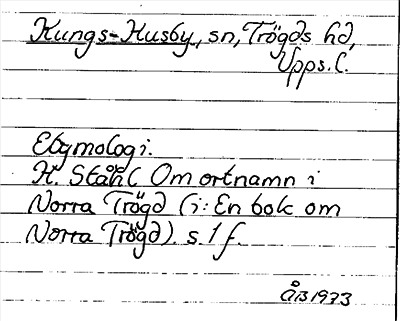 Kungs-Husby, sn, Trögds hd,
Upps. l.
Etymologi.
H. Ståhl Om ortnamn i
Norra Trögd (i: En bok om
Norra Trögd). s. 1 f.
ÅB 1973